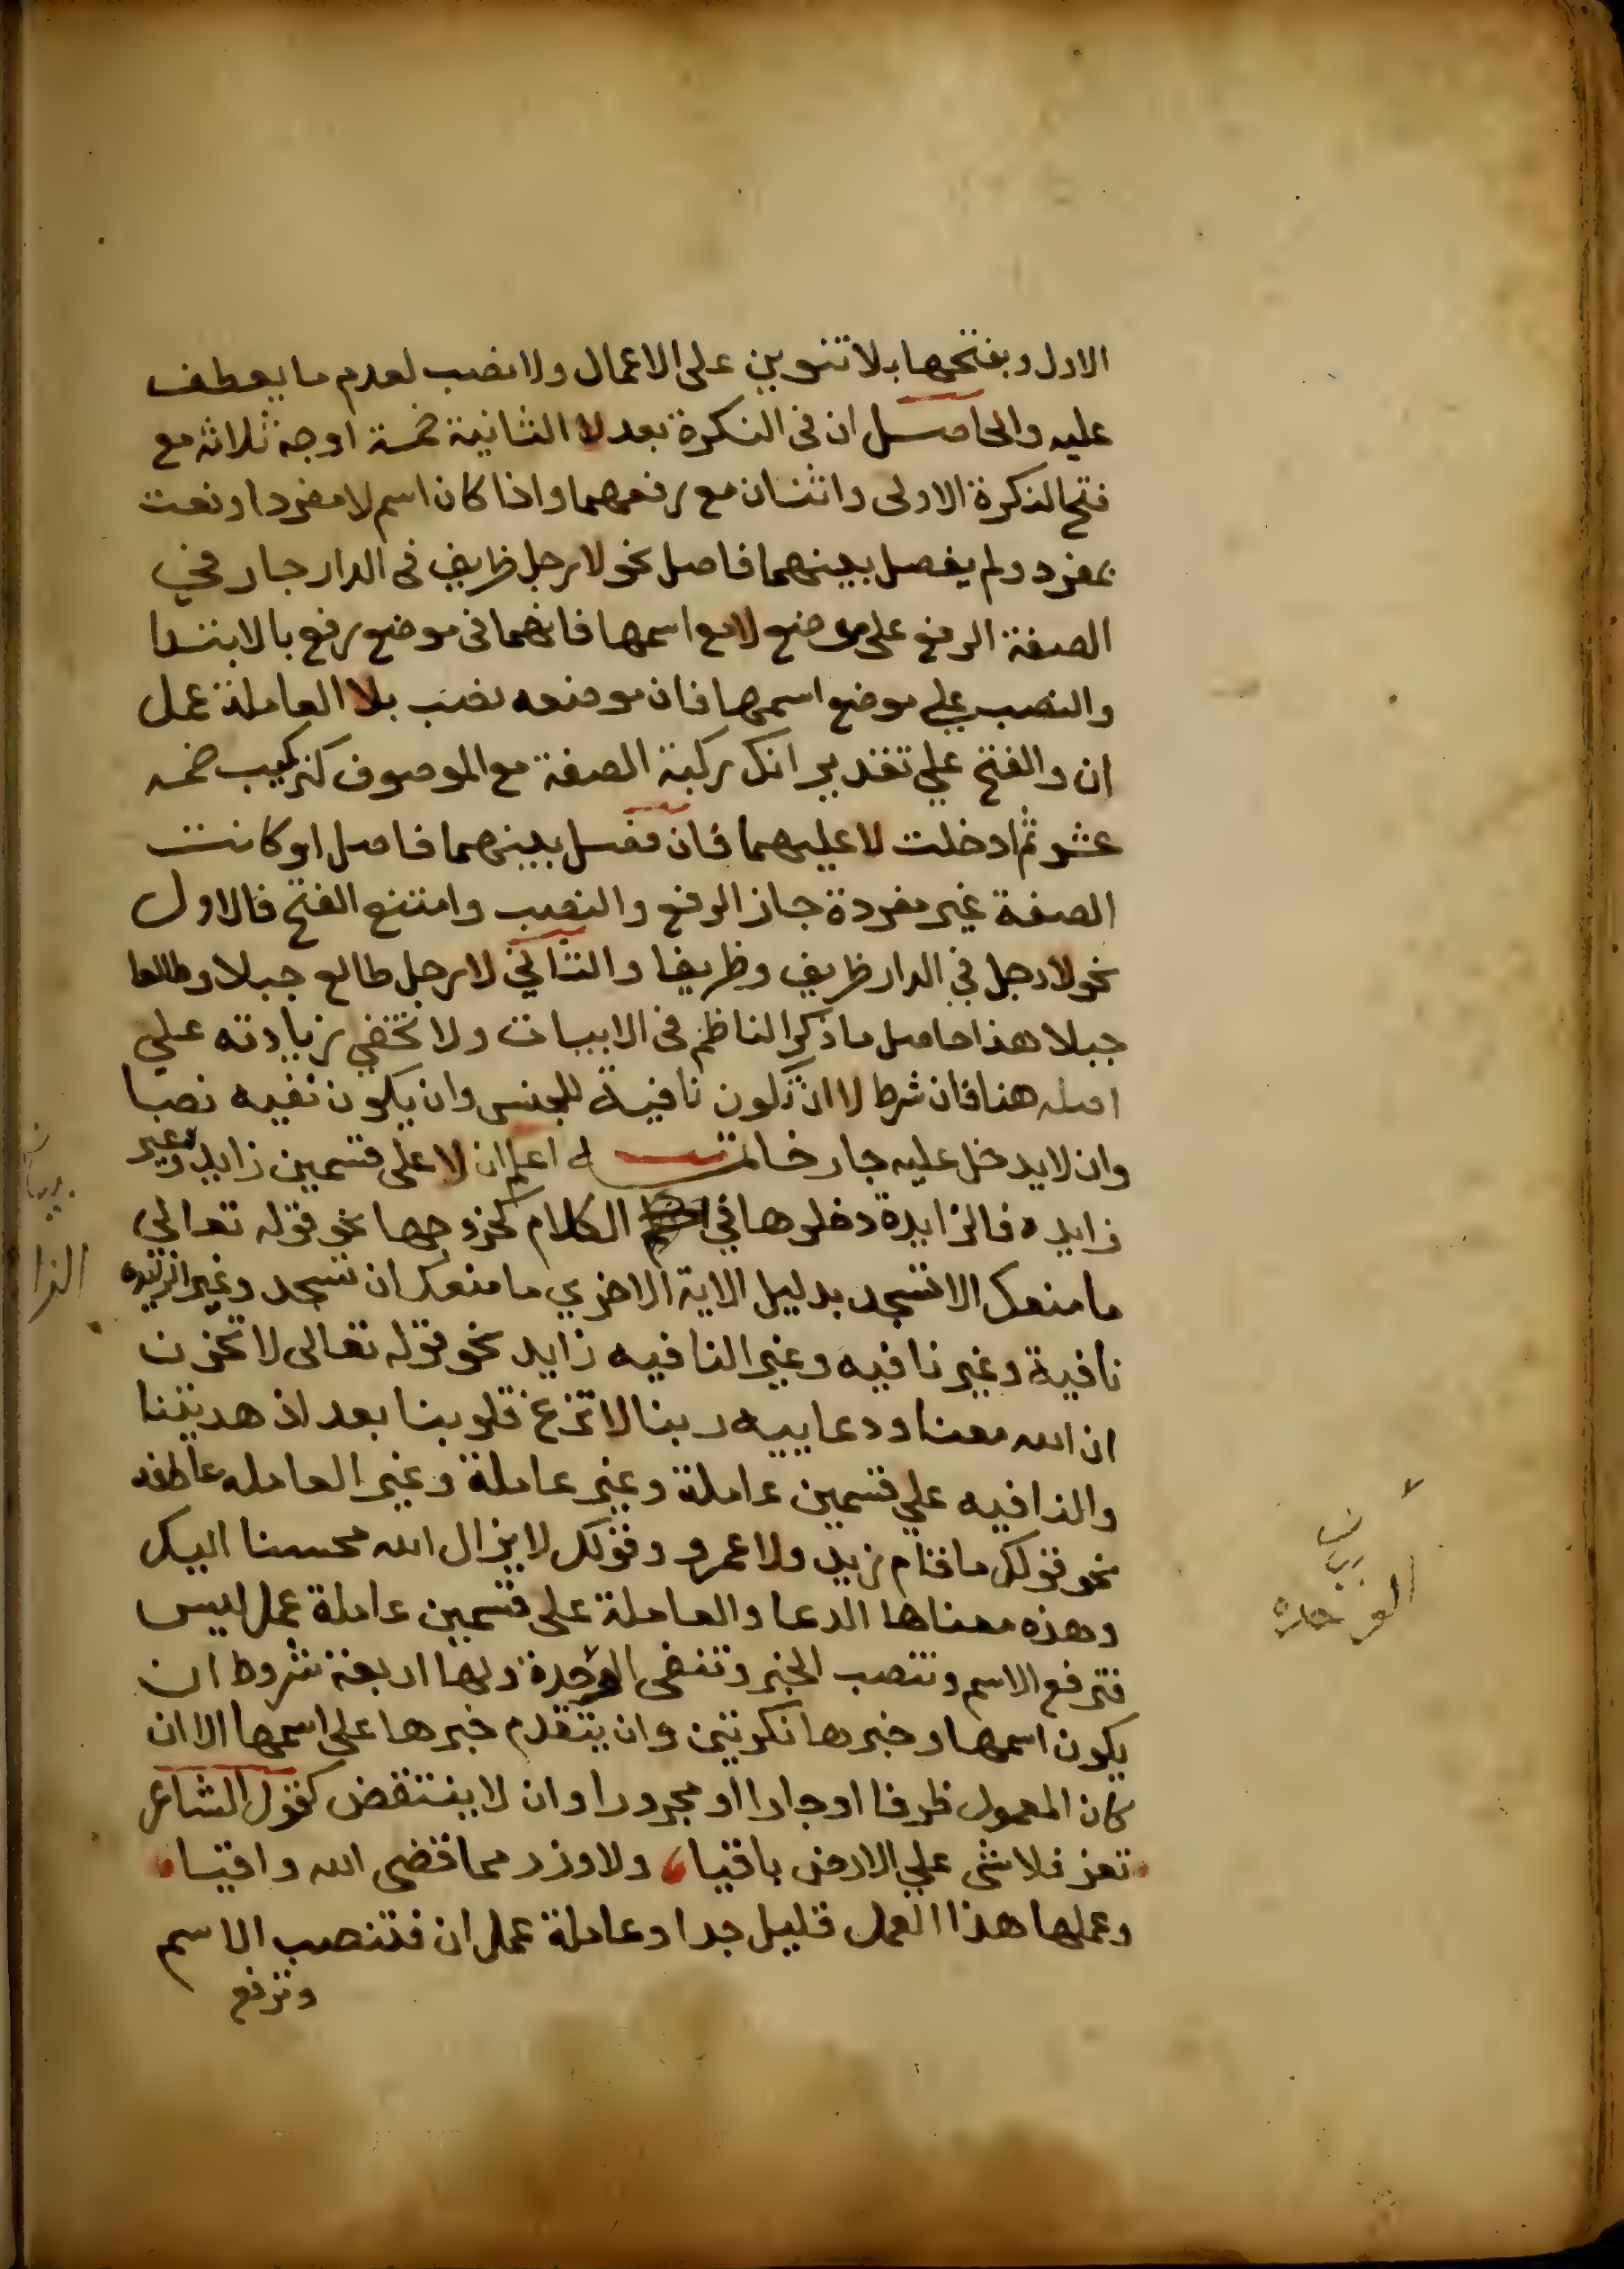 الاول وبفتحها بلا تنوين على الاعمال ولا نصب لعدم ما يعطف
عليه والحاصل ان فى النكرة بعد لا الثانية خمسة اوجه ثلاثه مع
فتح النكرة الاولى واثنان مع رفعهما واذا كان اسم لا مفردا ونعت
بمفرد ولم يفصل بينهما فاصل نحو لا رجل ظريف فى الدار جاز في
الصفة الرفع على موضع لا مع اسمها فانهما فى موضع رفع بالابتدا
والنصب علي موضع اسمها فان موضعه نصب بلا العاملة عمل
ان والفتح علي تقدير انك ركبة الصفة مع الموصوف كتركيب خمسه
عشر ثم ادخلت لا عليهما فان فصل بينهما فاصل او كانت
الصفة غير مفردة جاز الرفع والنصب وامتنع الفتح فالاول
نحو لا رجل في الدار ظريف وظريفا والثاني لا رجل طالع جبلا وطالعا
جبلا هذا حاصل ما ذكر الناظم فى الابيات ولا تخفي زيادته علي
اصله هنا فان شرط لا ان تكون نافية للجنس وان يكون نفيه نصبا
وان لا يدخل عليه جار خاتمـــه اعلم ان لا على قسمين زايد وغير
زايده فالزايدة دخلوها في الكلام كخروجها نحو قوله تعالي
ما منعك الا تسجد بدليل الاية الاخري ما منعك ان تسجد وغير الزايده
نافية وغير نافيه وغير النافيه زايد نحو قوله تعالى لا تحزن
ان الله معنا ودعاييه ربنا لا تزغ قلوبنا بعد اذ هديتنا
والنافيه علي قسمين عاملة وغير عاملة وغير العامله عاطفه
نحو قولك ما قام زيد ولا عمرو وقولك لا يزال الله محسنا اليك
وهذه معناها الدعا والعاملة على قسمين عاملة عمل ليس
فترفع الاسم وتنصب الخبر وتنفى الوحدة ولها اربعة شروط ان
يكون اسمها وخبرها نكرتين وان يتقدم خبرها على اسمها الا ان
كان المعمول ظرفا او جارا او مجرورا وان لا ينتقض كقول الشاعر
تعز فلا شى علي الارض باقيا ولا وزر مما قضى الله واقيا
وعملها هذا العمل قليل جدا وعاملة عمل ان فتنصب الاسم
وترفع